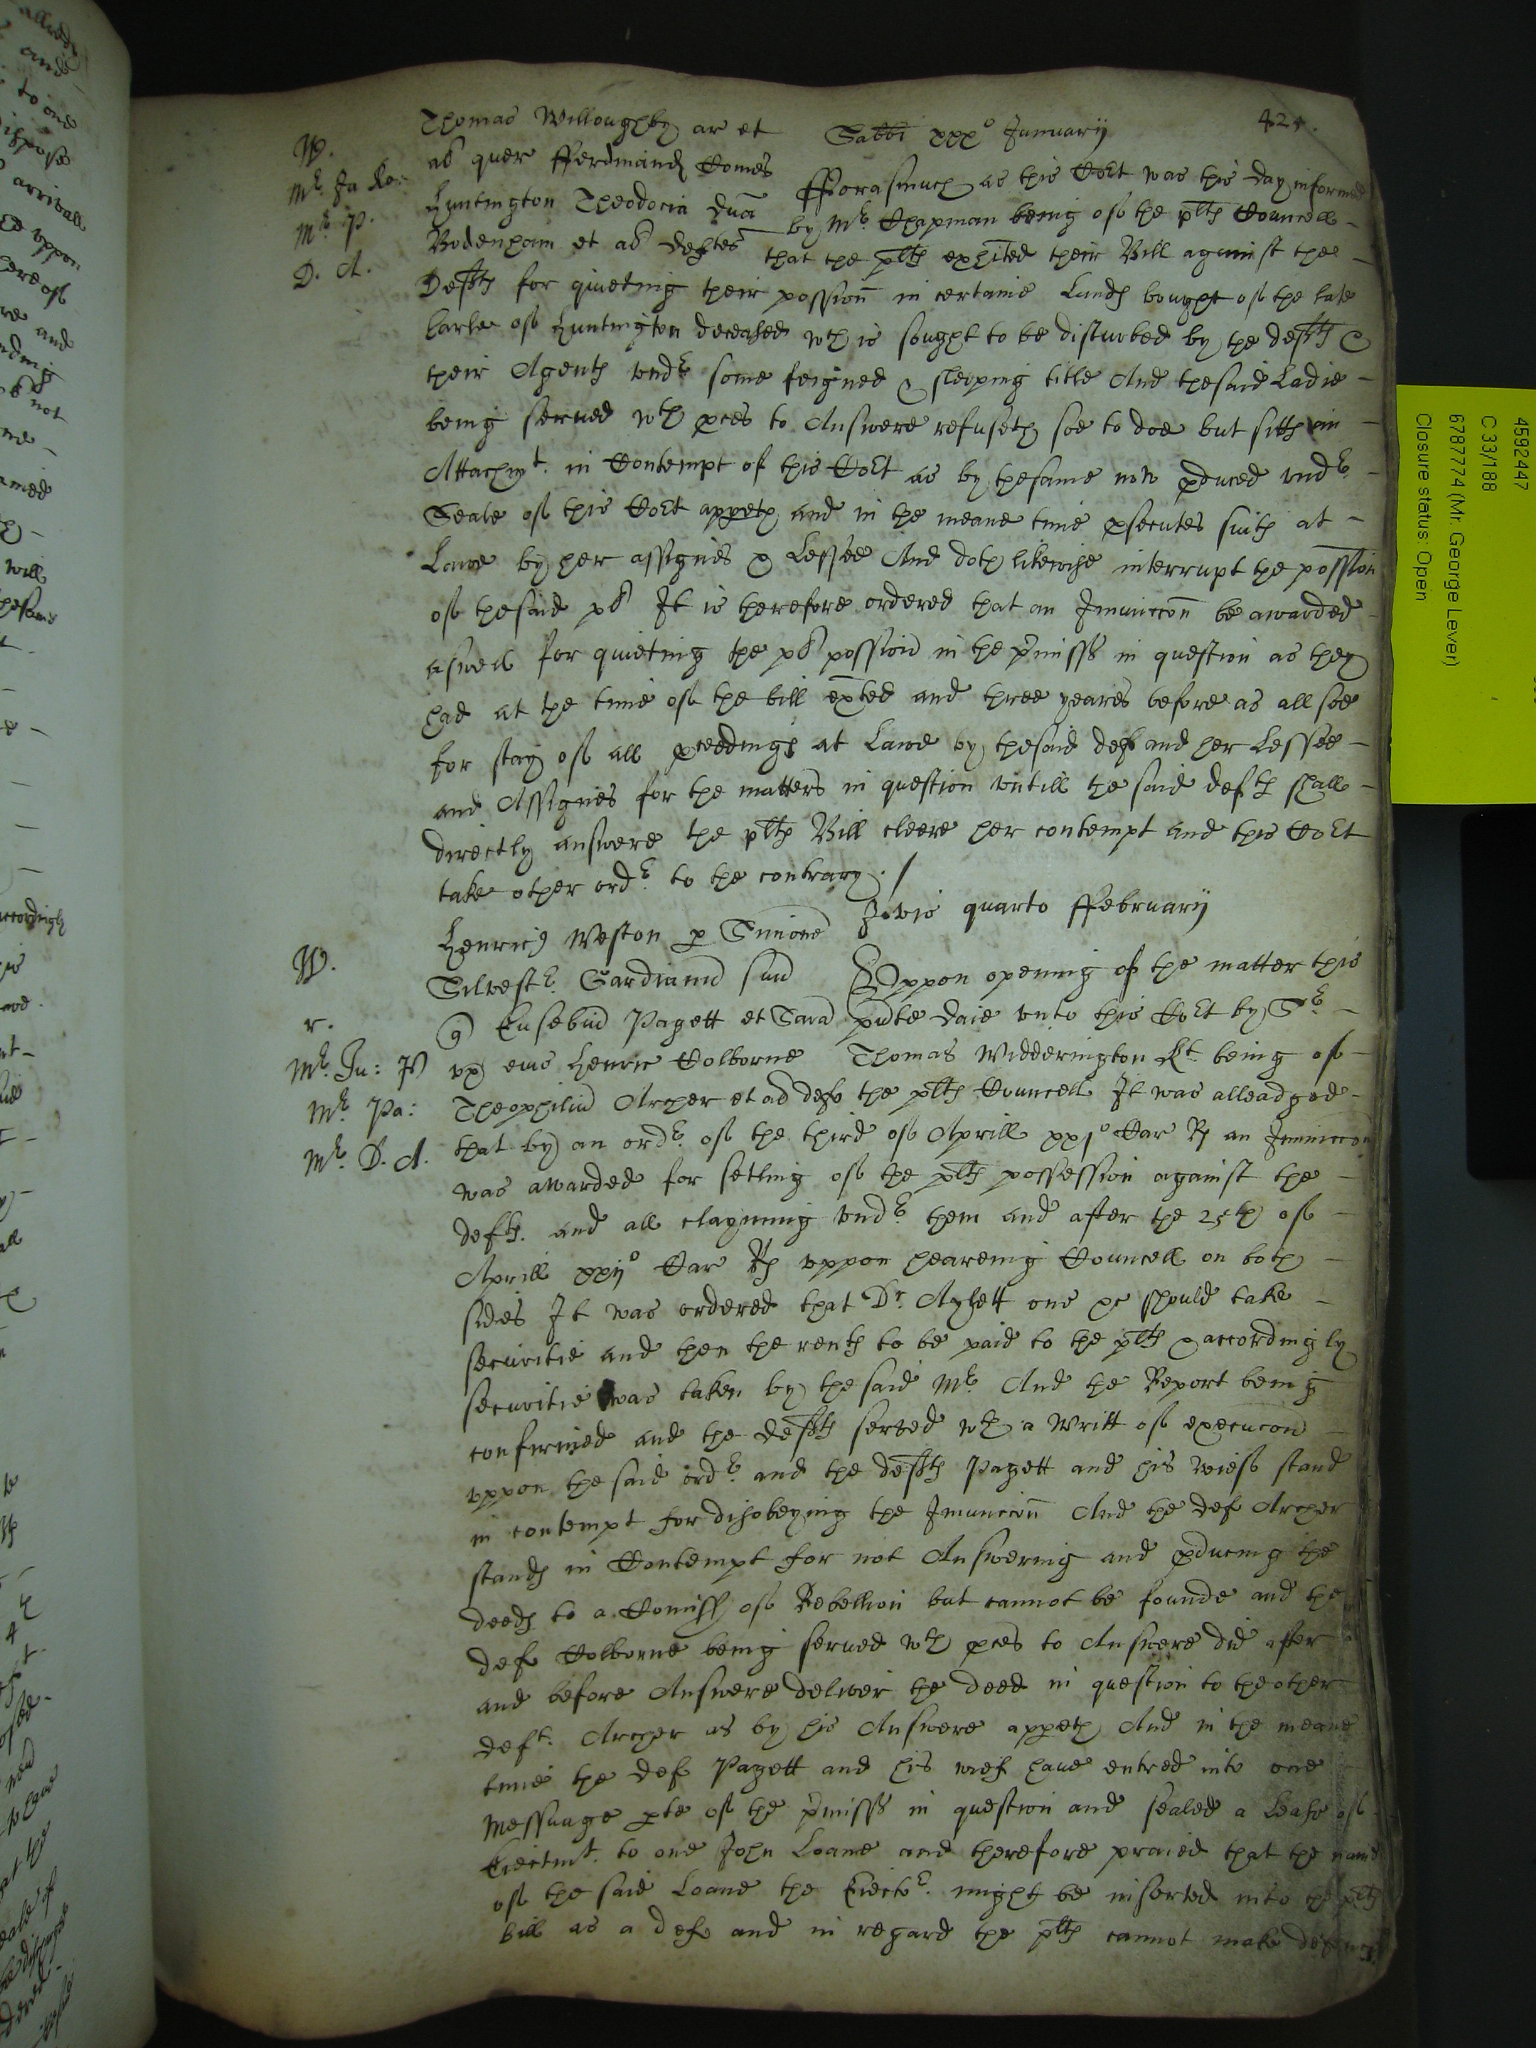 424.
Thomas Willoughby ar et Sabbi xxx° Januarij
W.
Mr. Ja. Ro:
al quer fferdinand Comes fforasmuch as this Cort was this day informed
Huntington Theodocia dna by Mr. Chapman being of the plts Councell
Mr. P.
Bodenham et al deftes that the plts exhited their Bill against the
D. A.
Defts for quieting their possion in certaine Lands bought of the late
Earle of Huntington deceased wch is sought to be disturbed by the defts &
their Agents undr some feigned & sleeping title And thesaid Ladie
being served wth pces to Answere refuseth soe to doe but sitts in
Attachmt. in Contempt of this Cort as by thesame now pduced undr
Seale of this Cort appeth and in the meane time psecutes suits at
Lawe by her assignes & Lessee And doth likewise interrupt the possion
of thesaid pl It is therefore ordered that an Iniunccon be awarded
aswell for quieting the pl possion in the pmisss in question as they
had at the time of the bill exted and three yeares before as all soe
for stay of all pceedings at Lawe by thesaid def and her Lessee
and Assignes for the matters in question untill the said deft shall
directly answere the plts Bill cleere her contempt and this Cort
take other ordr. to the contrary. /
Jovis quarto ffebruarij
Henric Weston p Simone
W.
Silvestr. Gardianu suu Uppon opening of the matter this
r.
q Eusebiu Pagett et Sara pnte daie unto this Cort by Sr.
Mr. Ju: P
ux eius Henric Colborne Thomas Widderington Kt. being of
Mr. Pa:
Theophilu Archer et al def the plts Councell It was alleadged
Mr. D. A.
that by an ordr. of the third of Aprill xxj° Car R an Iniunccon
was awarded for setling of the plts possession against the
defts. and all clayming undr. them and after the 25th of
Aprill xxij° Car R uppon heareing Councell on both
sides It was ordered that Dr. Aylett one &c should take
securitie and then the rents to be paid to the plts & accordingly
securitie was taken by the said Mr. And the Report being
confirmed and the defts served wth a Writt of execucon
uppon the said ordr. and the defts Pagett and his wief stand
in contempt for disobeying the Iniunccon And the def Archer
stands in Contempt for not Answering and pducing the
deeds to a Comiss of Rebellion but cannot be founde and the
def Colborne being served wth pces to Answere did after
and before Answere deliver the deed in question to the other
deft. Archer as by his Answere appeth And in the meane
time the def Pagett and his wief have entred into one
Messuage pte of the pmisss in question and sealed a lease of
Eiectmt. to one John Loane and therefore praied that the name
of the said Loane the Eiectr. might be inserted into the plts
bill as a def and in regard the plts cannot make defence
4592447
C 33/188
6787774 (Mr. George Lever)
Closure status: Open